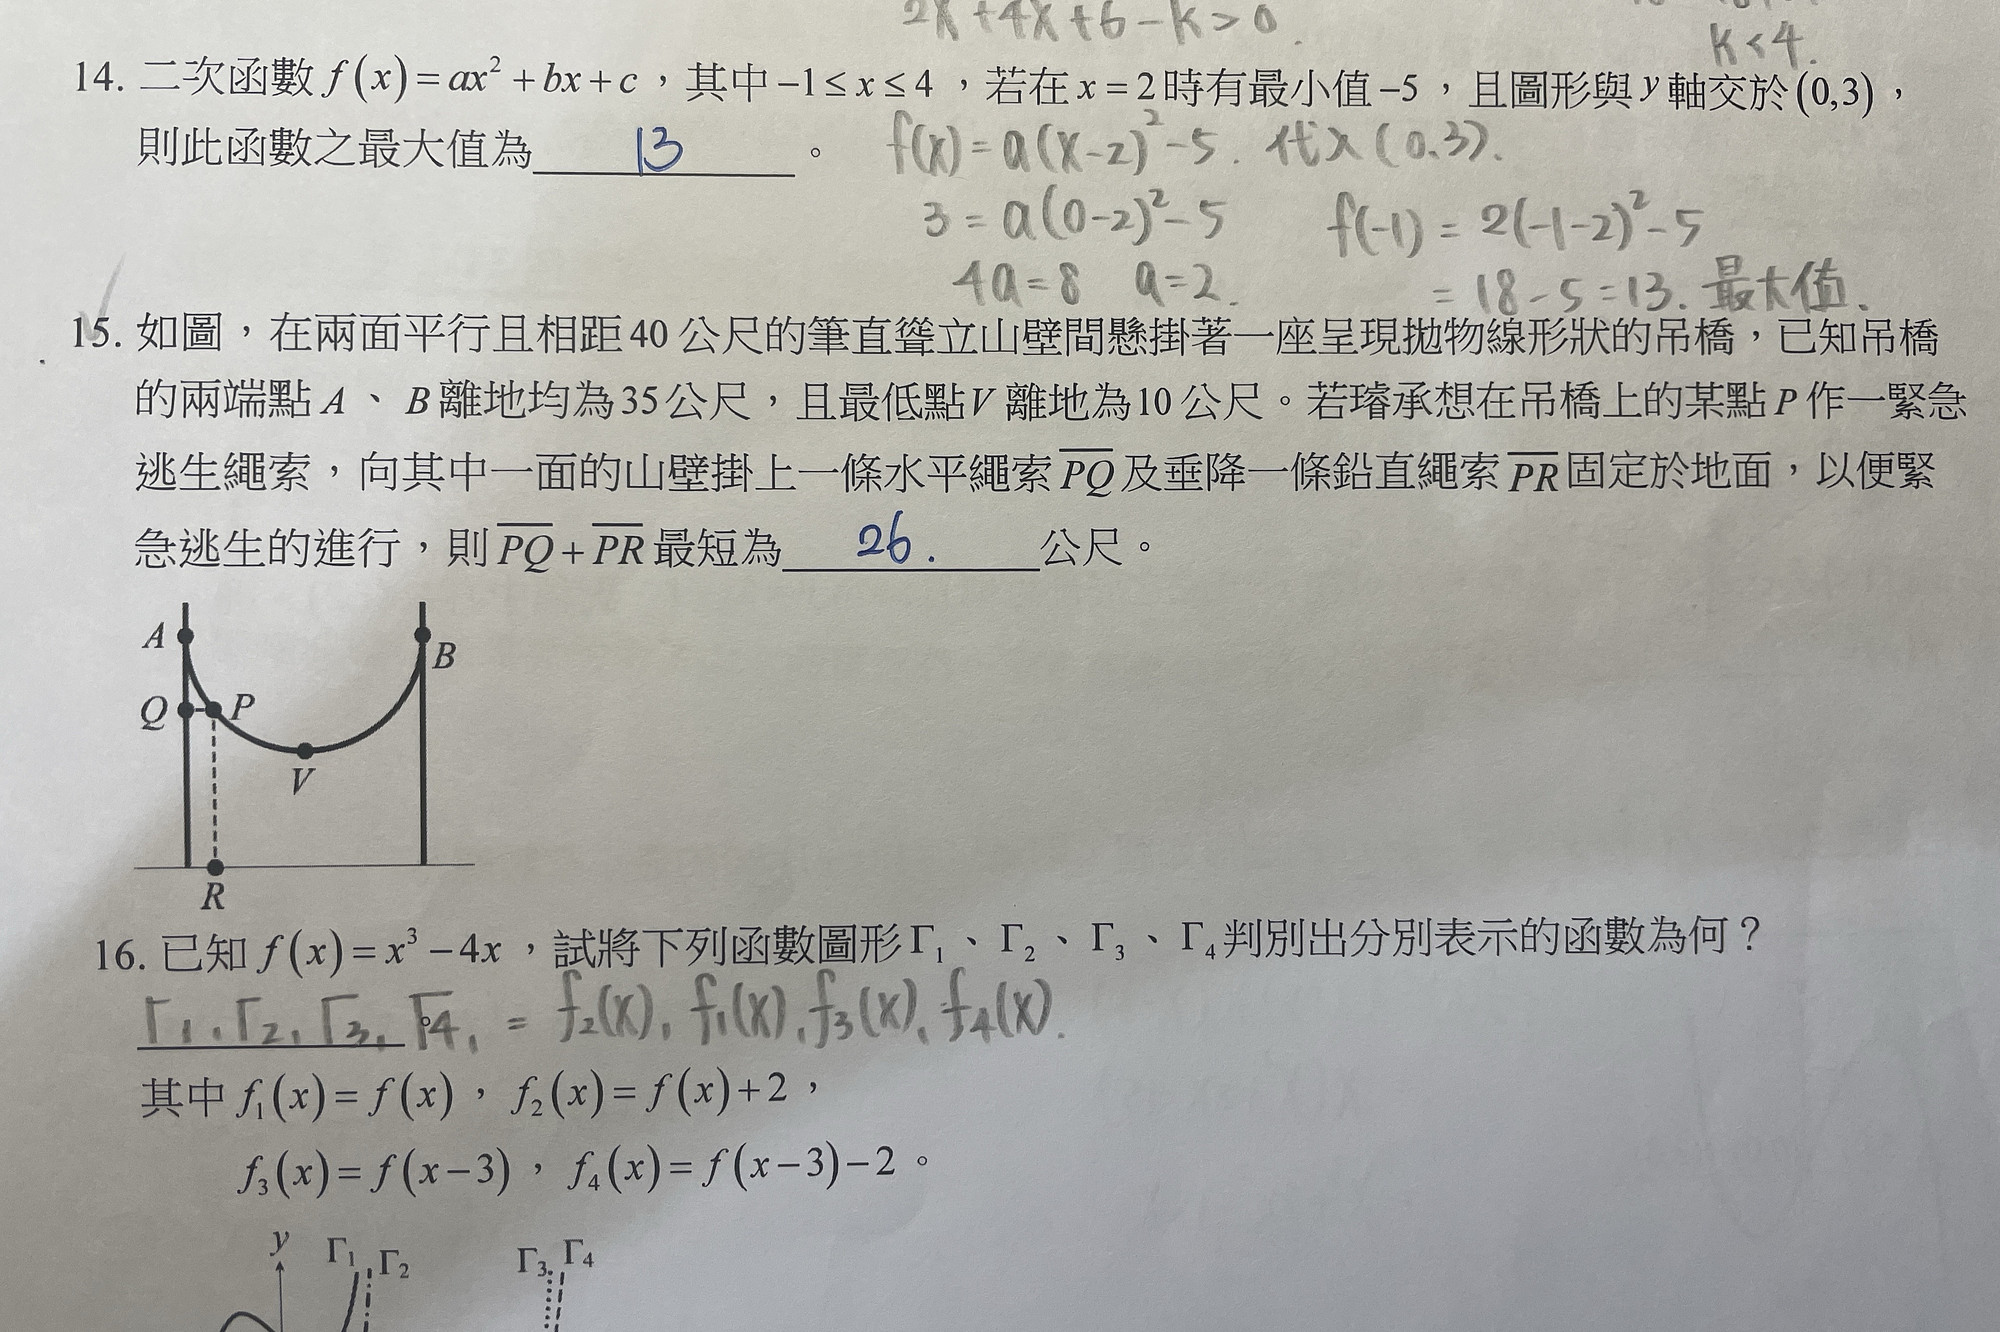 2x+4x+6-k>0.
k<4.
14. 二次函數 f(x)=ax²+bx+c，其中 -1≤x≤4，若在 x=2 時有最小值 -5，且圖形與 y 軸交於 (0,3)，
則此函數之最大值為 13 。
f(x)=a(x-2)²-5. 代入(0.3).
3=a(0-2)²-5 f(-1)=2(-1-2)²-5
4a=8 a=2. =18-5=13. 最大值.
15. 如圖，在兩面平行且相距 40 公尺的筆直聳立山壁間懸掛著一座呈現拋物線形狀的吊橋，已知吊橋
的兩端點 A、B 離地均為 35 公尺，且最低點 V 離地為 10 公尺。若璿承想在吊橋上的某點 P 作一緊急
逃生繩索，向其中一面的山壁掛上一條水平繩索 P̅Q̅ 及垂降一條鉛直繩索 P̅R̅ 固定於地面，以便緊
急逃生的進行，則 P̅Q̅+P̅R̅ 最短為 26. 公尺。
A
B
Q
P
V
R
16. 已知 f(x)=x³-4x，試將下列函數圖形 Γ₁、Γ₂、Γ₃、Γ₄ 判別出分別表示的函數為何？
Γ1, Γ2, Γ3, Γ4, 。 = f₂(x), f₁(x), f₃(x), f₄(x).
其中 f₁(x)=f(x)，f₂(x)=f(x)+2，
f₃(x)=f(x-3)，f₄(x)=f(x-3)-2。
y Γ₁ Γ₂ Γ₃ Γ₄